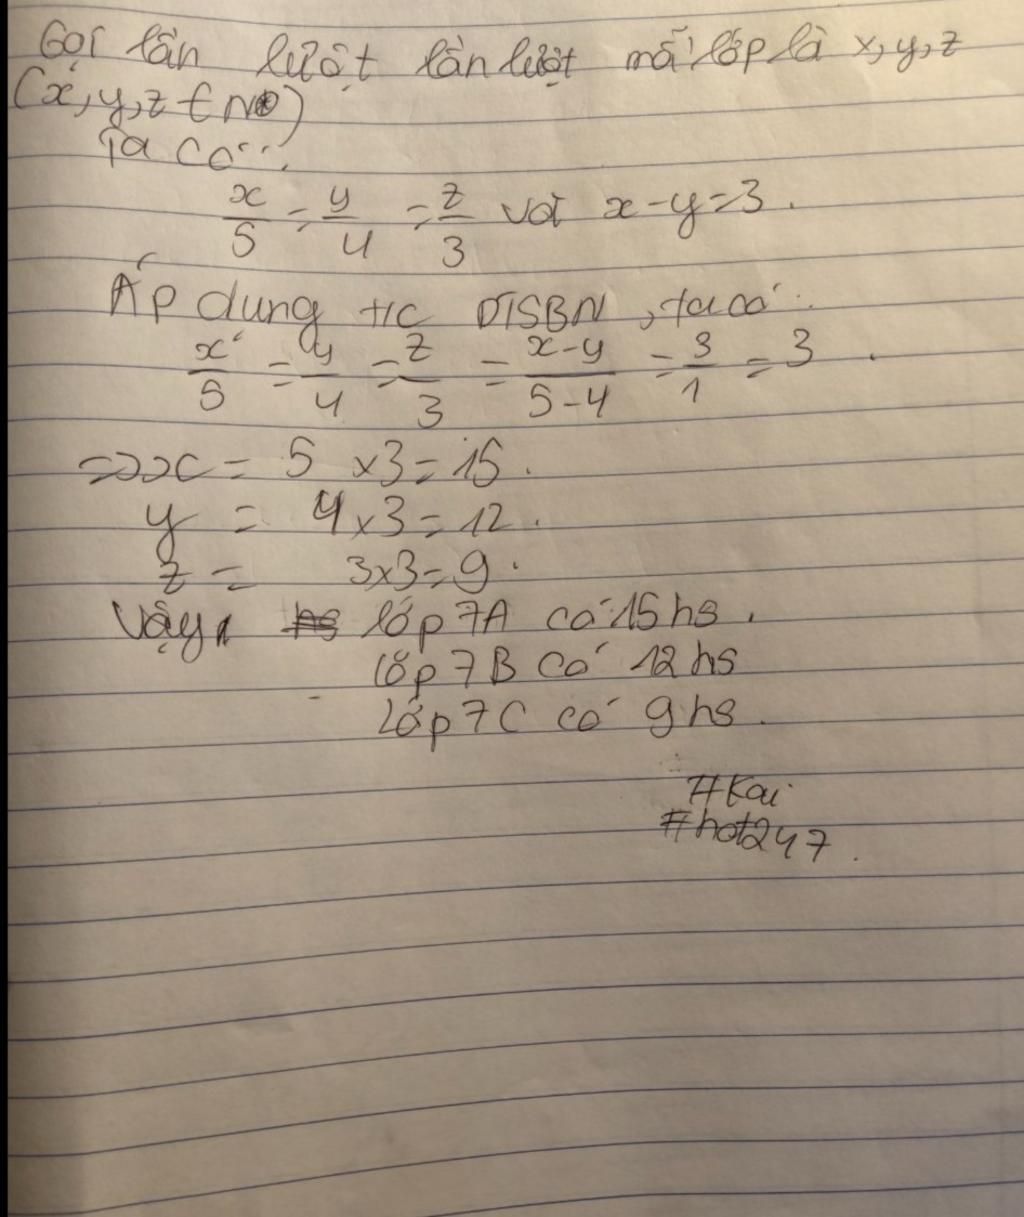 Gọi lần lượt lần lượt mỗi lớp là x, y, z
(x, y, z ∈ N*)
Ta có:
x/5 = y/4 = z/3 với x-y=3.
Áp dụng t/c DTSBN, ta có:
x/5 = y/4 = z/3 = x-y/5-4 = 3/1 = 3.
=> x = 5 x3=15.
y = 4x3=12.
z = 3x3=9.
Vậy, hs lớp 7A có 15 hs.
lớp 7B có 12 hs
lớp 7C có 9 hs.
#Kai
#hot247.